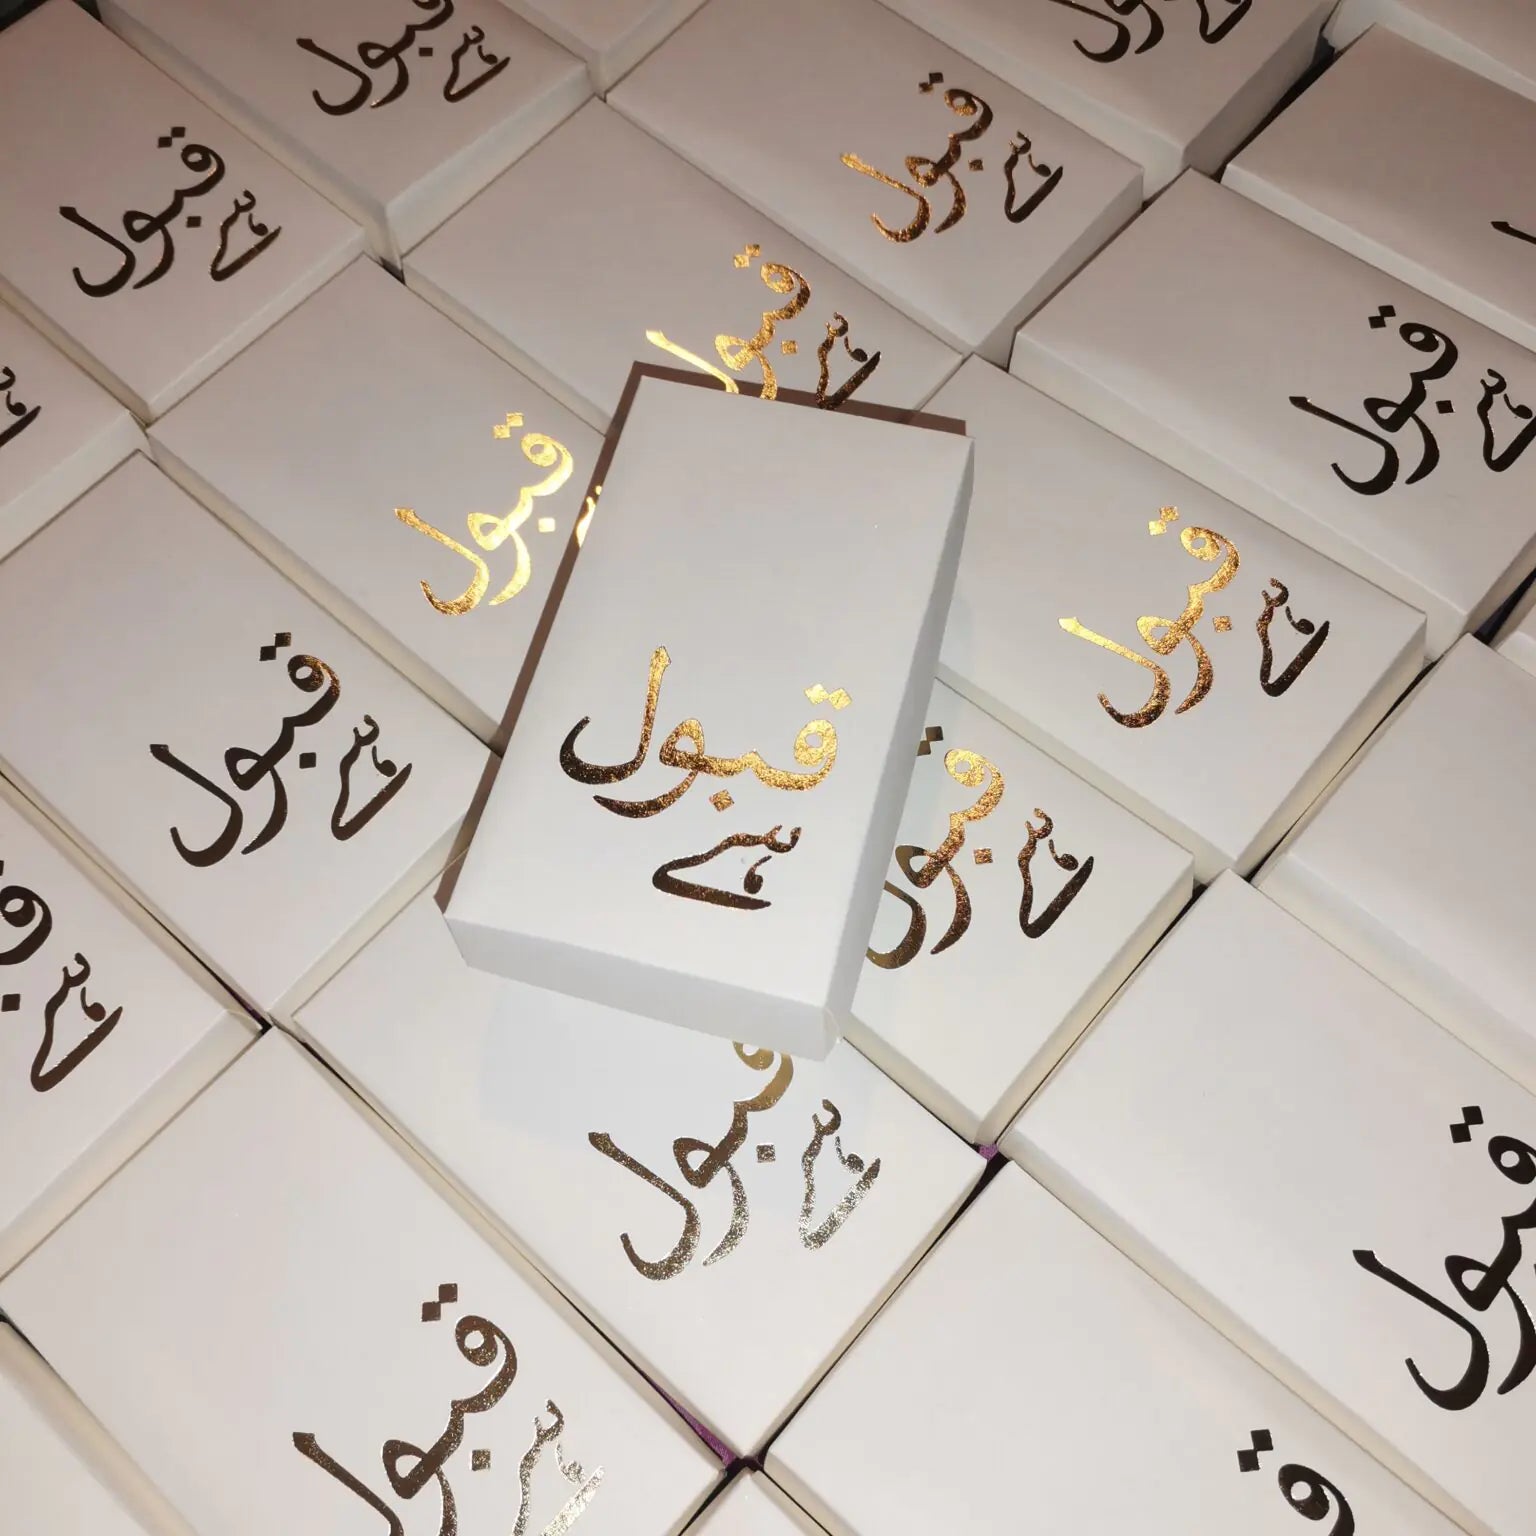 قبول
ہے